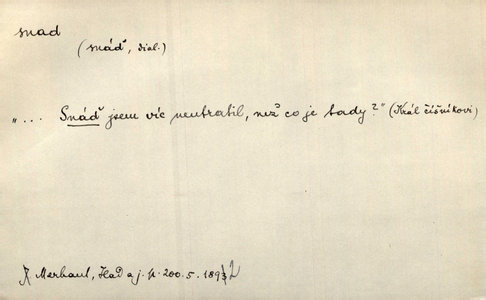 snad
(snáď, dial.)
„... Snáď jsem víc neutratil, než co je tady?" (Král číšníkovi)
Merhaut, Had a j. p. 200. 5. 1892